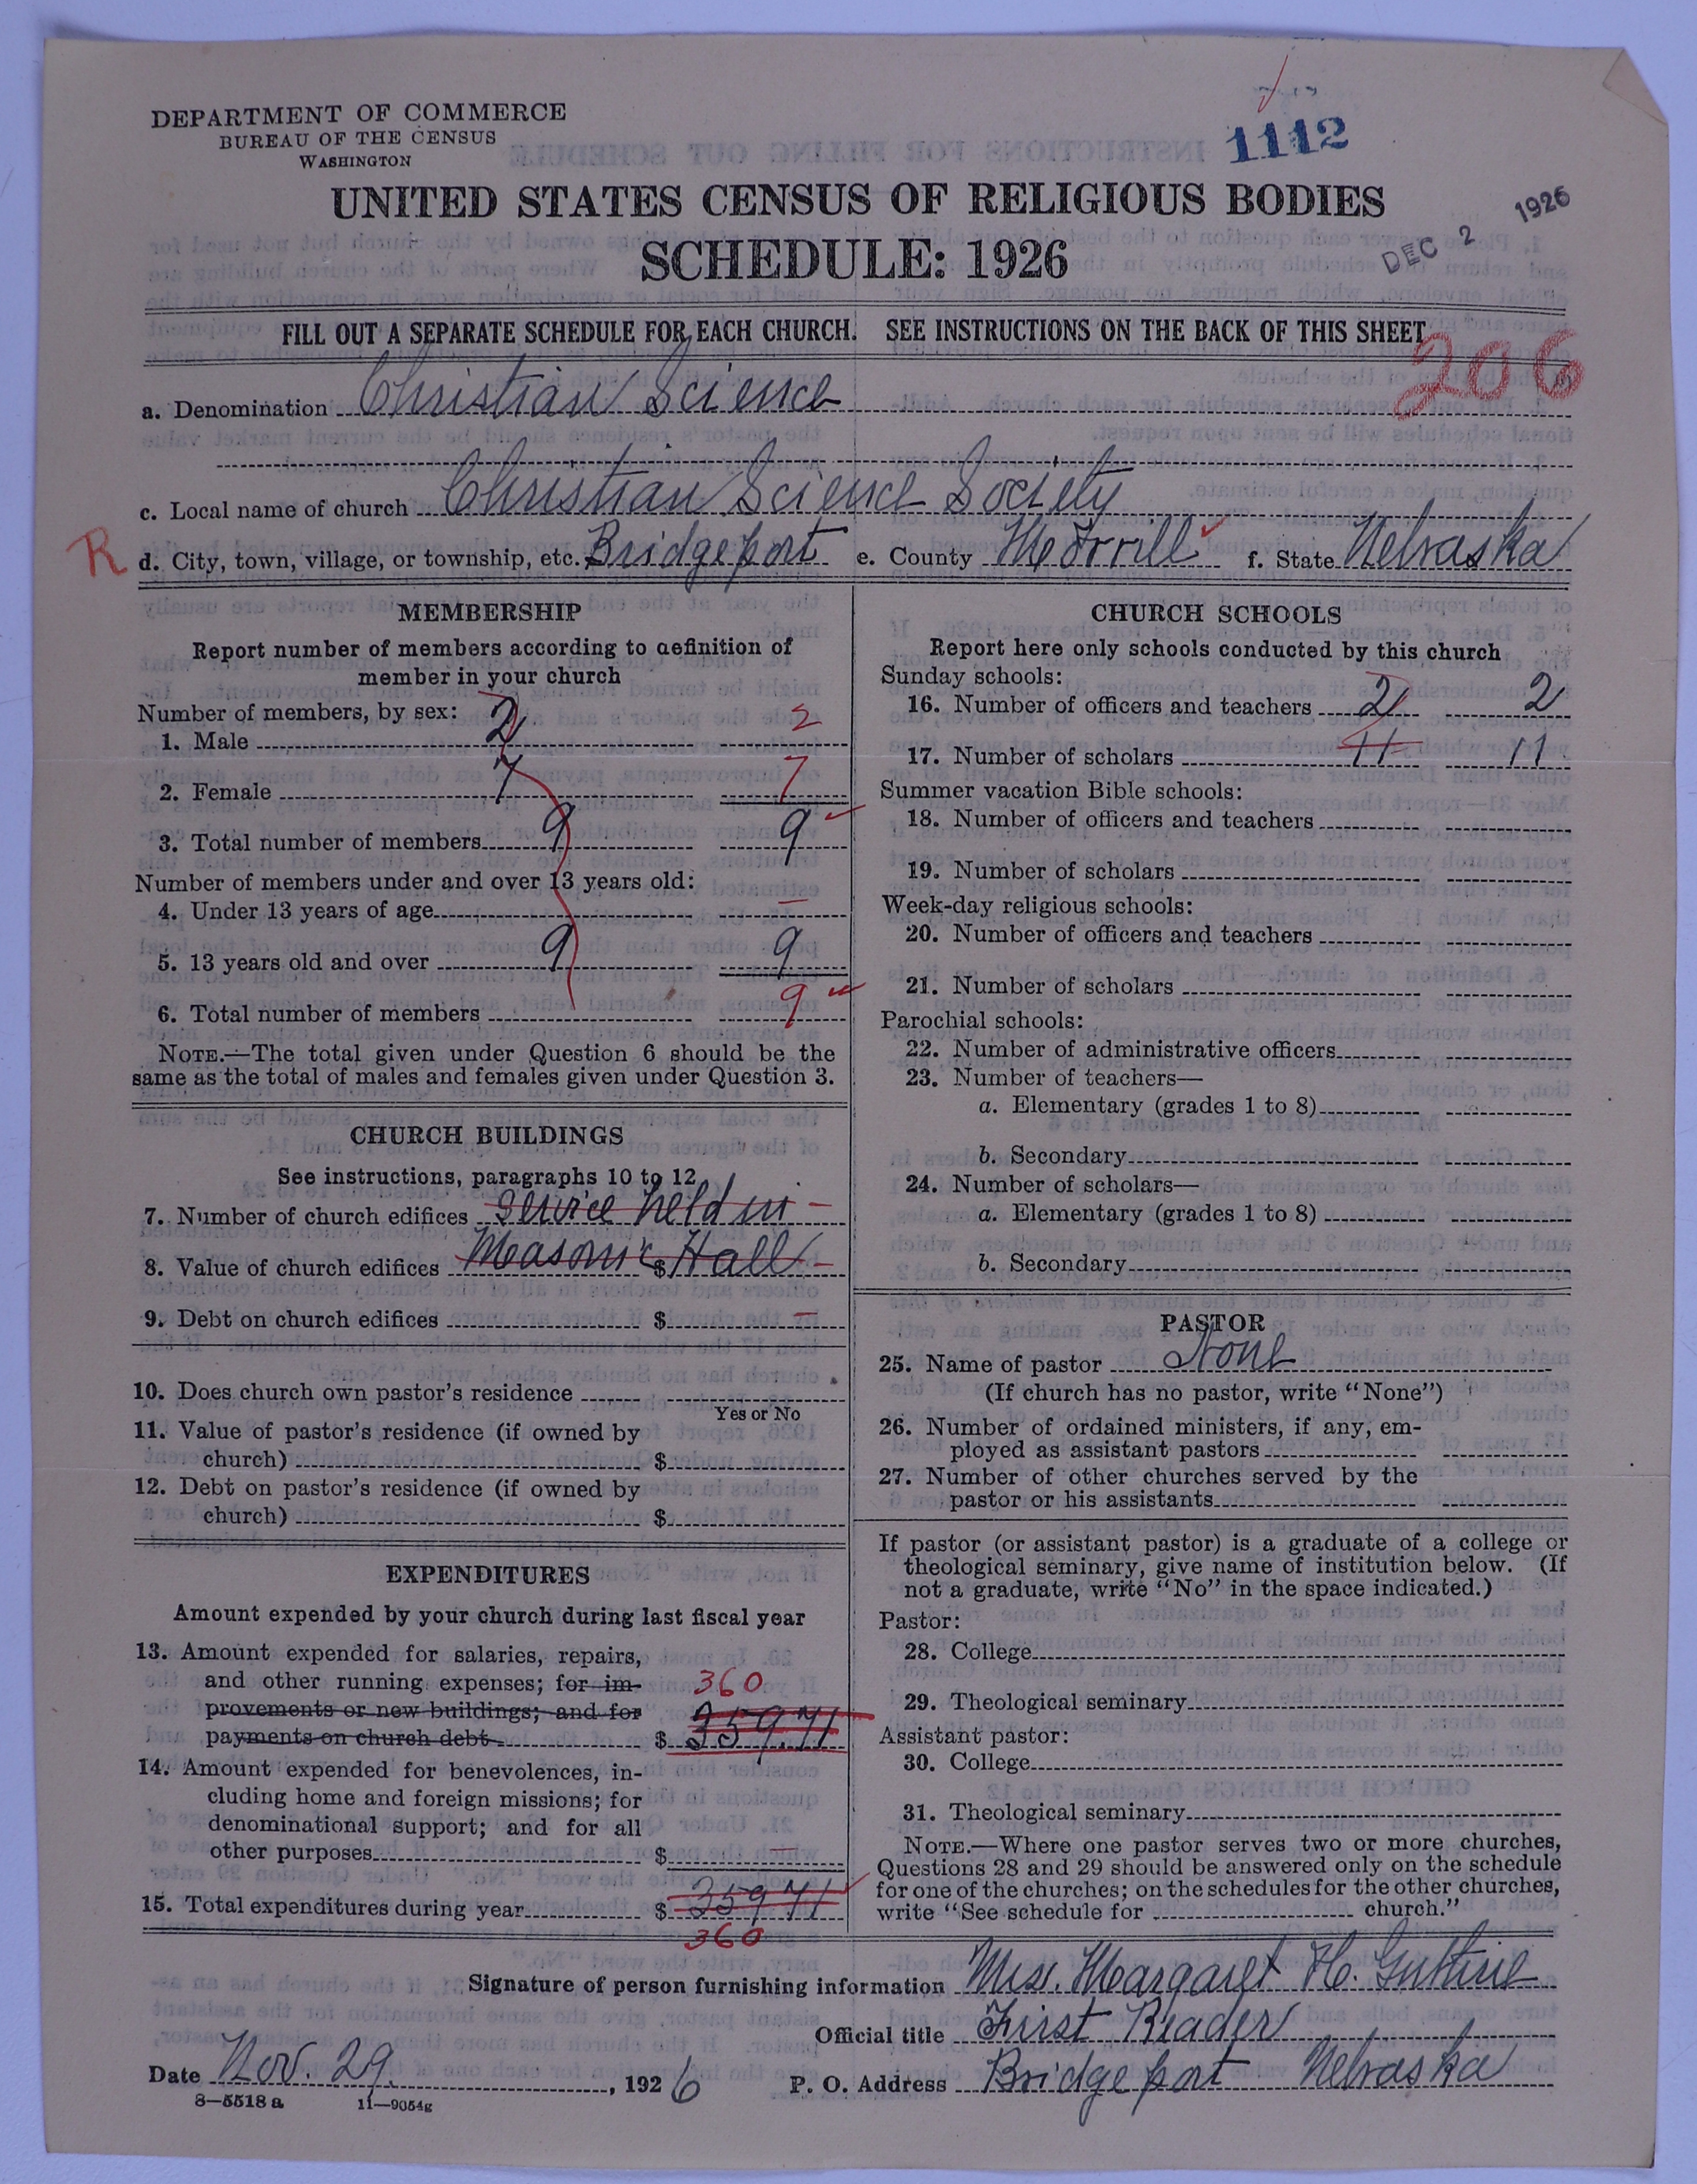 DEPARTMENT OF COMMERCE
BUREAU OF THE CENSUS
WASHINGTON
1112
UNITED STATES CENSUS OF RELIGIOUS BODIES
SCHEDULE: 1926
DEC 2 1926
FILL OUT A SEPARATE SCHEDULE FOR EACH CHURCH. SEE INSTRUCTIONS ON THE BACK OF THIS SHEET
206
a. Denomination Christian Science
c. Local name of church Christian Science Society
R d. City, town, village, or township, etc. Bridgeport e. County Morrill f. State Nebraska
MEMBERSHIP
Report number of members according to definition of
member in your church
Number of members, by sex:
1. Male 2 2
2. Female 7 7
3. Total number of members 9 9
Number of members under and over 13 years old:
4. Under 13 years of age —
5. 13 years old and over 9 9
6. Total number of members 9
NOTE.—The total given under Question 6 should be the
same as the total of males and females given under Question 3.
CHURCH BUILDINGS
See instructions, paragraphs 10 to 12
7. Number of church edifices Service held in —
8. Value of church edifices Masonic $ Hall —
9. Debt on church edifices $ —
10. Does church own pastor's residence
Yes or No
11. Value of pastor's residence (if owned by
church) $
12. Debt on pastor's residence (if owned by
church) $
EXPENDITURES
Amount expended by your church during last fiscal year
13. Amount expended for salaries, repairs,
and other running expenses; for im- 360
provements or new buildings; and for
payments on church debt $ 359.71
14. Amount expended for benevolences, in-
cluding home and foreign missions; for
denominational support; and for all
other purposes $ —
15. Total expenditures during year $ 359 71
360
CHURCH SCHOOLS
Report here only schools conducted by this church
Sunday schools:
16. Number of officers and teachers 2 2
17. Number of scholars 11 11
Summer vacation Bible schools:
18. Number of officers and teachers
19. Number of scholars
Week-day religious schools:
20. Number of officers and teachers
21. Number of scholars
Parochial schools:
22. Number of administrative officers
23. Number of teachers—
a. Elementary (grades 1 to 8)
b. Secondary
24. Number of scholars—
a. Elementary (grades 1 to 8)
b. Secondary
PASTOR
25. Name of pastor None
(If church has no pastor, write "None")
26. Number of ordained ministers, if any, em-
ployed as assistant pastors
27. Number of other churches served by the
pastor or his assistants
If pastor (or assistant pastor) is a graduate of a college or
theological seminary, give name of institution below. (If
not a graduate, write "No" in the space indicated.)
Pastor:
28. College
29. Theological seminary
Assistant pastor:
30. College
31. Theological seminary
NOTE.—Where one pastor serves two or more churches,
Questions 28 and 29 should be answered only on the schedule
for one of the churches; on the schedules for the other churches,
write "See schedule for church."
Signature of person furnishing information Mrs. Margaret H. Guthrie
Official title First Reader
Date Nov. 29, 1926 P. O. Address Bridgeport Nebraska
8—5518 a 11—9054g